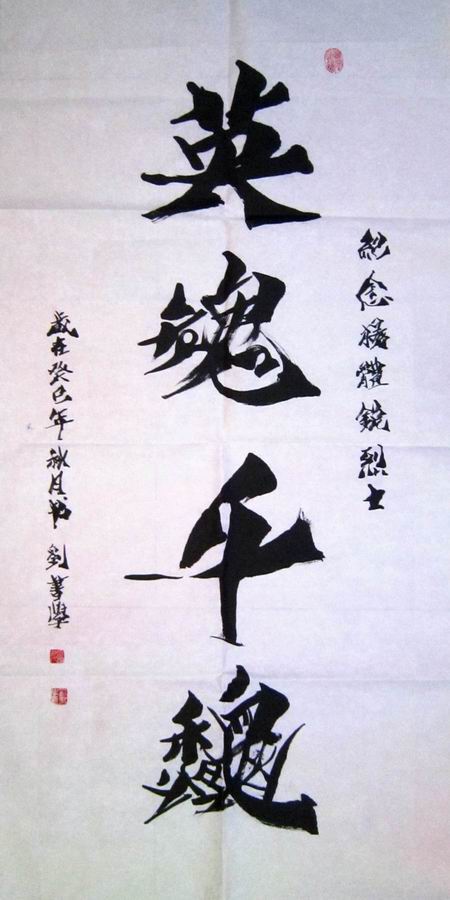 紀念體鏡烈士
英魂千龝
歲在癸巳年秋月書 劉學